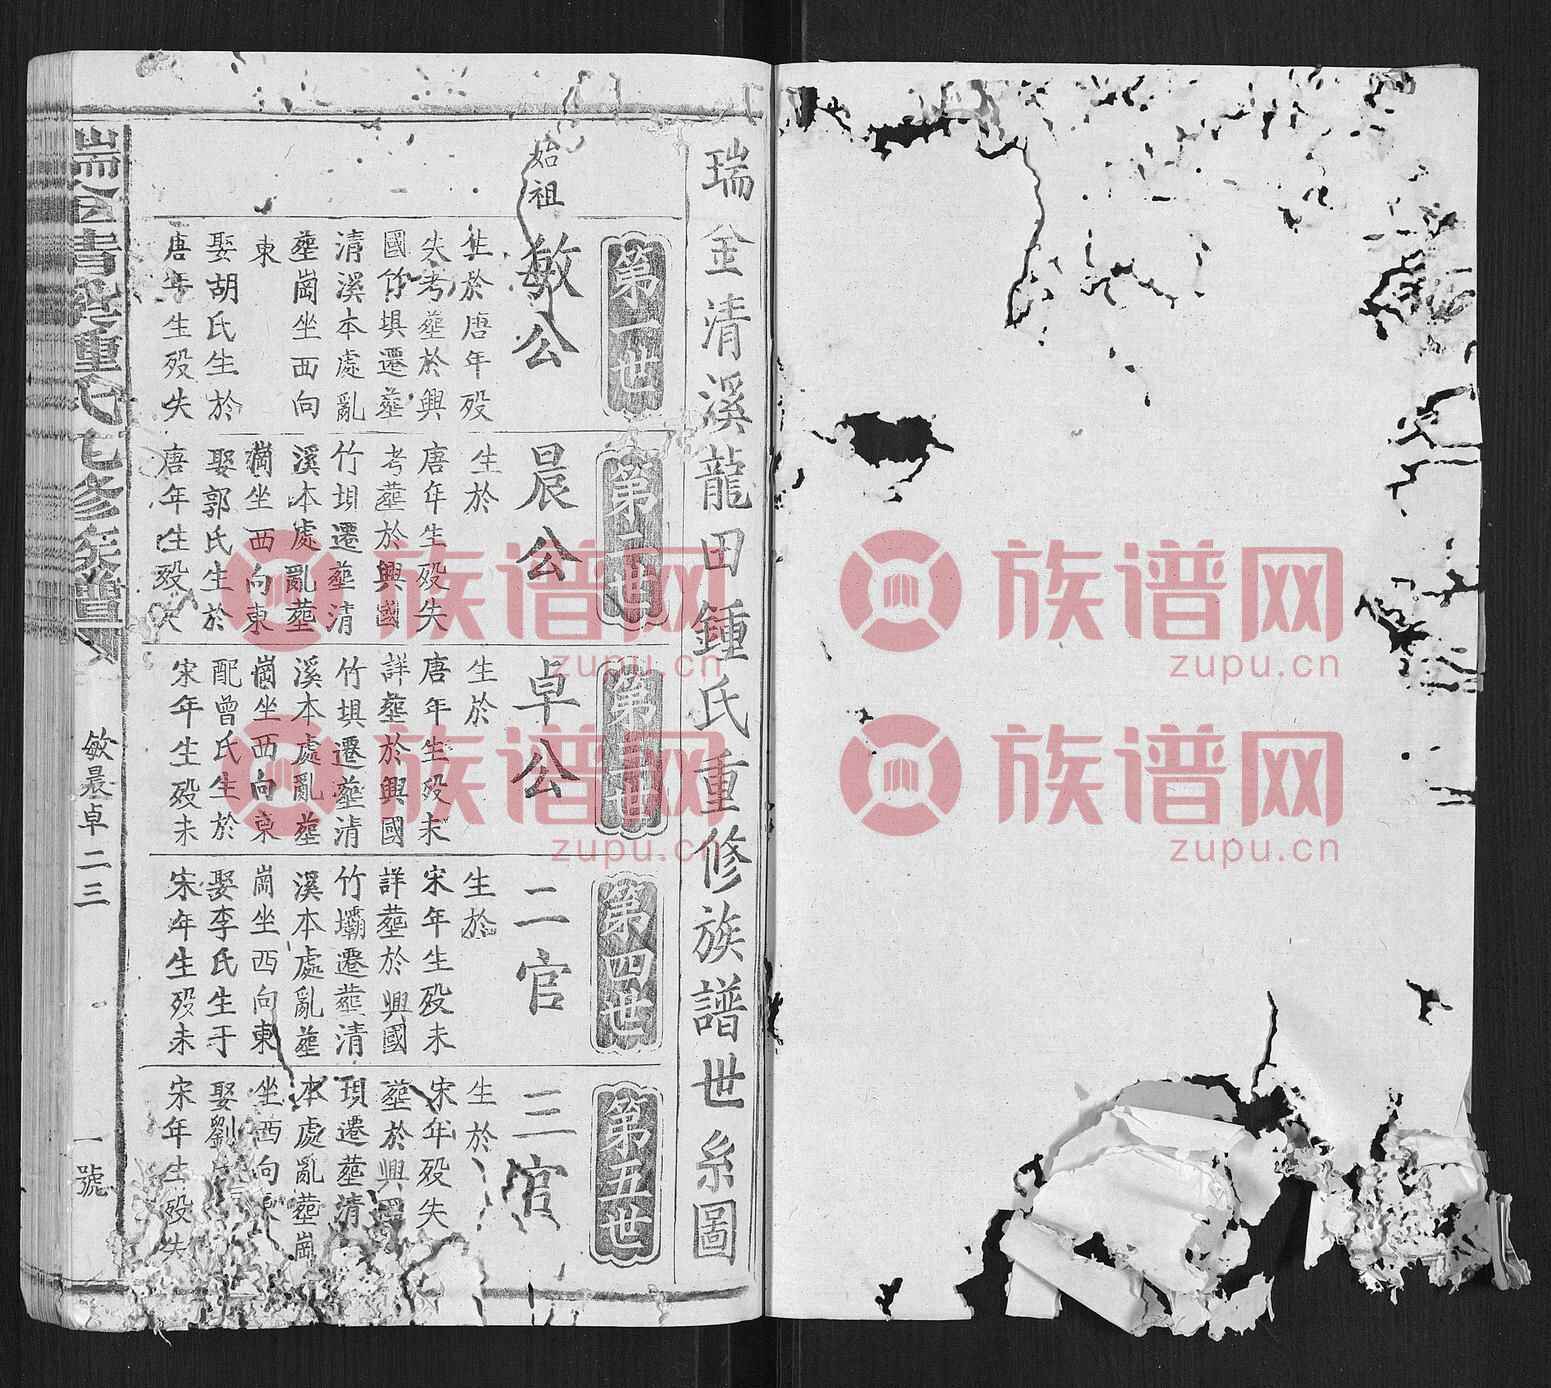 瑞金清溪龍田鍾氏重修族譜世系圖
第一世
始祖
敏公
生於唐年殁
失考塟於興
國竹垻遷塟
清溪本處亂
塟崗坐西向
東
娶胡氏生於
唐年生殁失
第二世
晨公
生於
唐年生殁失
考塟於興國
竹垻遷塟清
溪本處亂塟
崗坐西向東
娶郭氏生於
唐年生殁失
第三世
卓公
生於
唐年生殁未
詳塟於興國
竹垻遷塟清
溪本處亂塟
崗坐西向東
配曾氏生於
宋年生殁未
第四世
二官
生於
宋年生殁未
詳塟於興國
竹壩遷塟清
溪本處亂塟
崗坐西向東
娶李氏生于
宋年生殁未
第五世
三官
生於
宋年殁失
塟於興國
垻遷塟清
本處亂塟崗
坐西向東
娶劉
宋年生殁失
瑞金清溪鍾氏七修族譜
敏晨卓 二三
一號
族谱网
zupu.cn
族谱网
zupu.cn
族谱网
zupu.cn
族谱网
zupu.cn